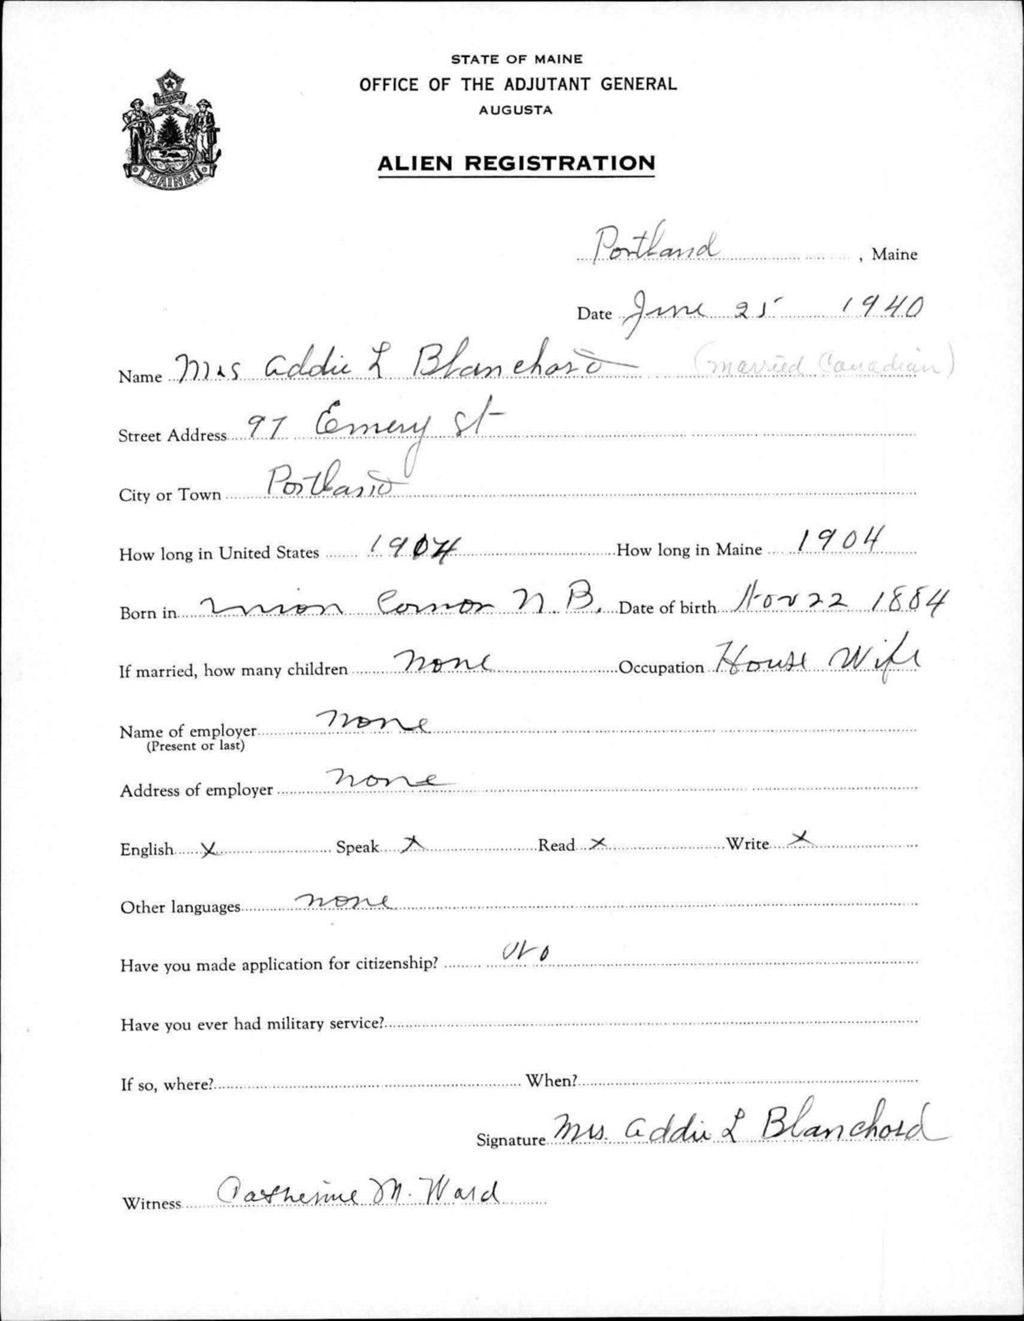 STATE OF MAINE
OFFICE OF THE ADJUTANT GENERAL
AUGUSTA
ALIEN REGISTRATION
MAINE
Portland, Maine
Date June 25 1940
Name Mrs Addie L Blanchard (Married Canadian)
Street Address 97 Emery St
City or Town Portland
How long in United States 1904 How long in Maine 1904
Born in Union Cornor N. B. Date of birth Nov 22 1884
If married, how many children none Occupation House Wife
Name of employer none
(Present or last)
Address of employer none
English x Speak x Read x Write x
Other languages none
Have you made application for citizenship? No
Have you ever had military service?
If so, where? When?
Signature Mrs. Addie L Blanchard
Witness Catherine M. Ward